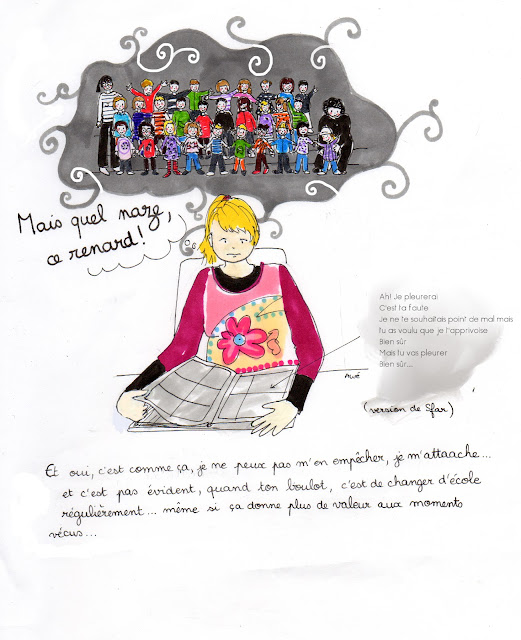 Mais quel naze,
ce renard!
Ah! Je pleurerai
C'est ta faute
Je ne te souhaitais point de mal mais
tu as voulu que je t'apprivoise
Bien sûr
Mais tu vas pleurer
Bien sûr...
(version de Sfar)
Et oui, c'est comme ça, je ne peux pas m'en empêcher, je m'attaache...
et c'est pas évident, quand ton boulot, c'est de changer d'école
régulièrement... même si ça donne plus de valeur aux moments
vécus...